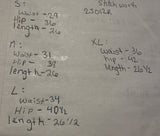 S:
waist - 29
Hip - 36
length - 26
M:
waist - 31
Hip - 38
length - 26
L:
waist - 34
Hip - 40½
length - 26½
XL:
waist - 36
hip - 42
length - 26½